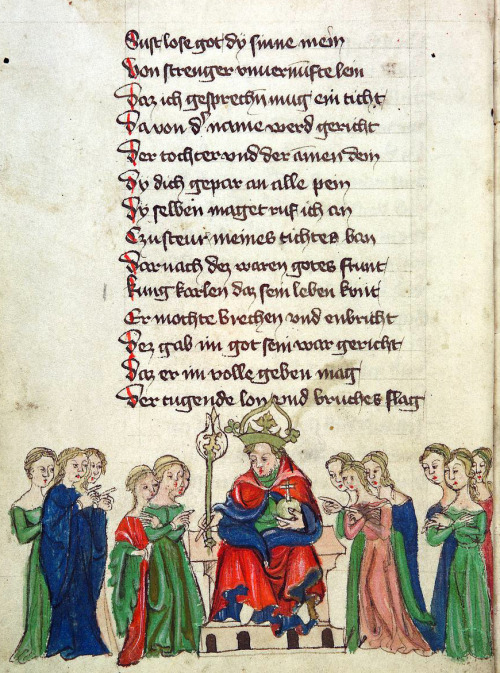 Sust lose got dy sinne mein
Von strenger vnuernufte lein
Daz ich gesprechn mug ein ticht
Da von d' name werd gericht
Der tochter vnd der amen dein
Dy dich gepar an alle pein
Dy selben maget ruf ich an
Czu steur meines tichtes ban
Dar nach dez waren gotes stunt
kung karlen daz sein leben kunt
Er mochte brechen vnd enbricht
Dez gab im got sein war gericht
Daz er im volle geben mag
Der tugende lon vnd bruches slag